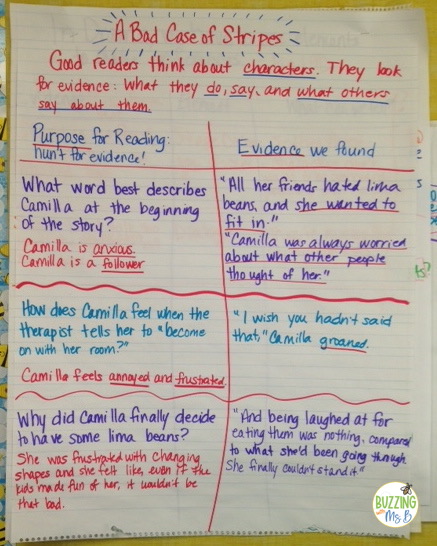 A Bad Case of Stripes
Good readers think about characters. They look
for evidence: What they do, say, and what others
say about them.
Purpose for Reading:
hunt for evidence!
Evidence we found
What word best describes
Camilla at the beginning
of the story?
Camilla is anxious.
Camilla is a follower
"All her friends hated lima
beans, and she wanted to
fit in."
"Camilla was always worried
about what other people
thought of her."
How does Camilla feel when the
therapist tells her to "become
on with her room?"
Camilla feels annoyed and frustrated.
"I wish you hadn't said
that," Camilla groaned.
Why did Camilla finally decide
to have some lima beans?
She was frustrated with changing
shapes and she felt like, even if the
kids made fun of her, it wouldn't be
that bad.
"And being laughed at for
eating them was nothing, compared
to what she'd been going through.
She finally couldn't stand it."
BUZZING
with
Ms. B